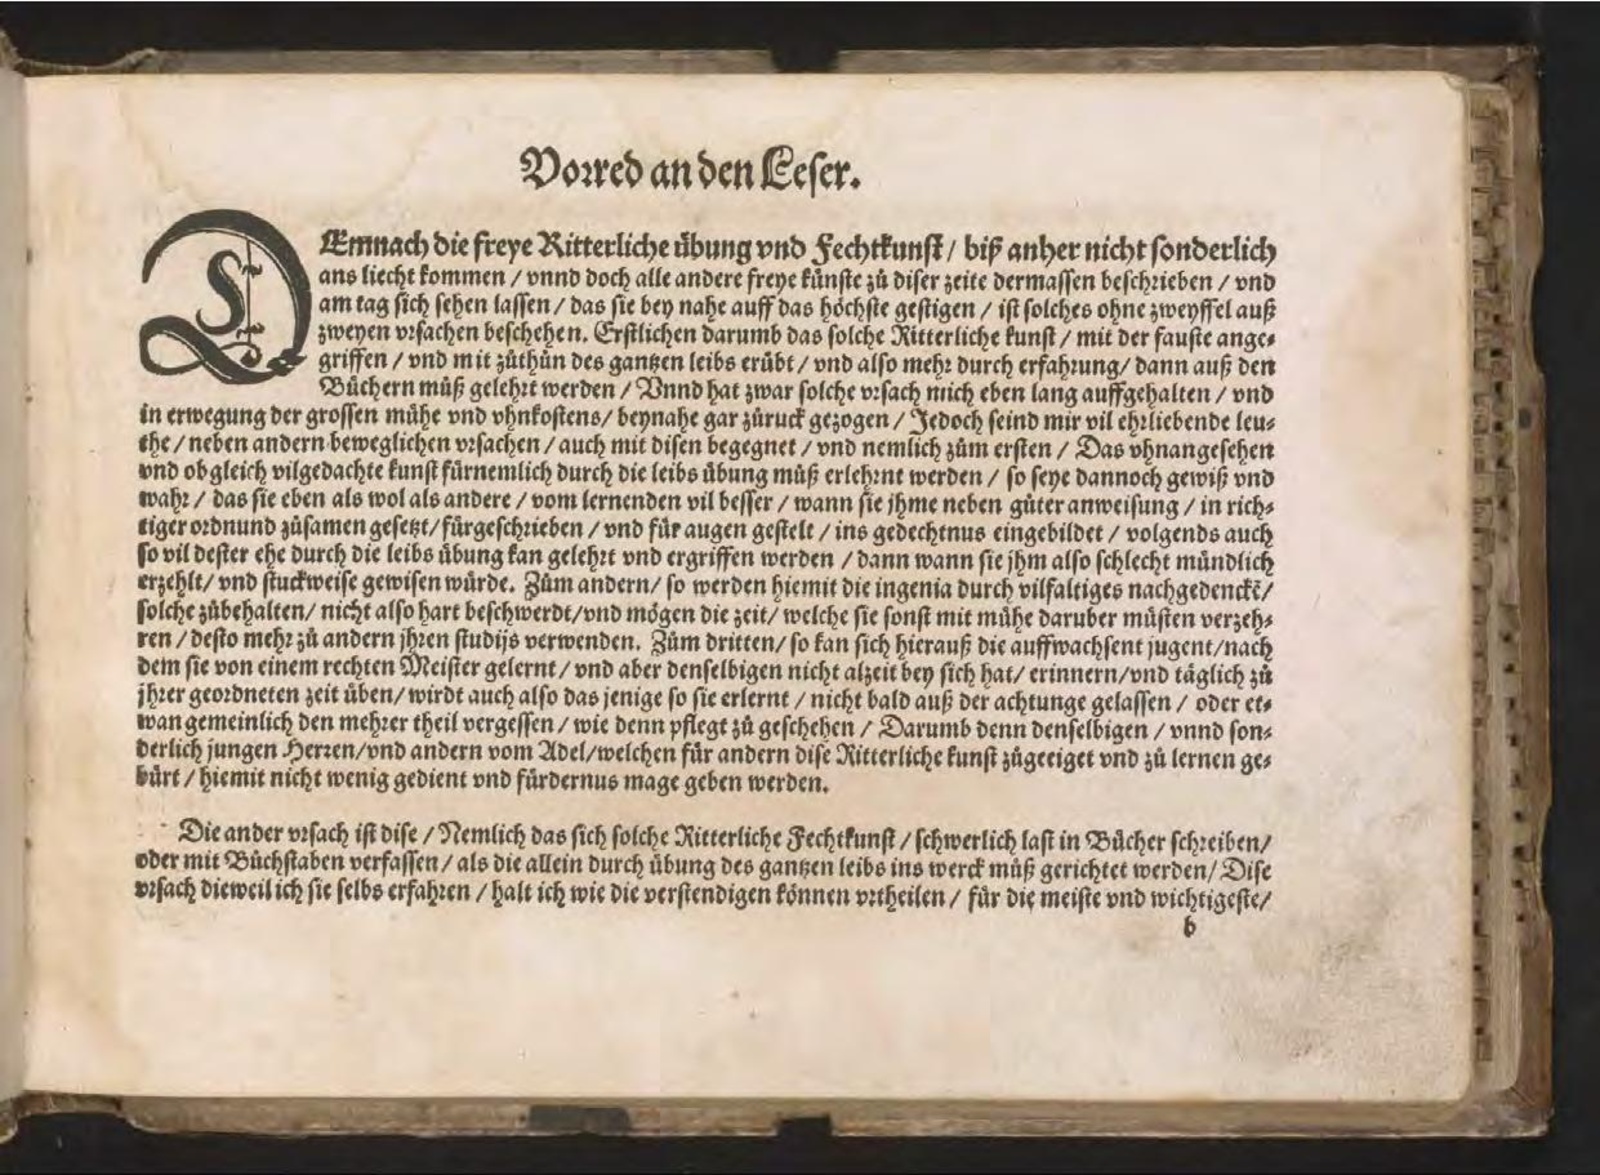 Vorred an den Leser.
DEmnach die freye Ritterliche übung vnd Fechtkunst / biß anher nicht sonderlich
ans liecht kommen / vnnd doch alle andere freye künste zů diser zeite dermassen beschrieben / vnd
am tag sich sehen lassen / das sie bey nahe auff das höchste gestigen / ist solches ohne zweyffel auß
zweyen vrsachen beschehen. Erstlichen darumb das solche Ritterliche kunst / mit der fauste ange⸗
griffen / vnd mit zůthůn des gantzen leibs erübt / vnd also mehr durch erfahrung / dann auß den
Büchern můß gelehrt werden / Vnnd hat zwar solche vrsach mich eben lang auffgehalten / vnd
in erwegung der grossen mühe vnd vhnkostens / beynahe gar zůruck gezogen / Jedoch seind mir vil ehrliebende leu⸗
the / neben andern beweglichen vrsachen / auch mit disen begegnet / vnd nemlich zům ersten / Das vhnangesehen
vnd ob gleich vilgedachte kunst fürnemlich durch die leibs übung můß erlehrnt werden / so seye dannoch gewiß vnd
wahr / das sie eben als wol als andere / vom lernenden vil besser / wann sie jhme neben gůter anweisung / in rich⸗
tiger ordnund zůsamen gesetzt / fürgeschrieben / vnd für augen gestelt / ins gedechtnus eingebildet / volgends auch
so vil dester ehe durch die leibs übung kan gelehrt vnd ergriffen werden / dann wann sie jhm also schlecht mündlich
erzehlt / vnd stuckweise gewisen würde. Zům andern / so werden hiemit die ingenia durch vilfaltiges nachgedenckẽ /
solche zůbehalten / nicht also hart beschwerdt / vnd mögen die zeit / welche sie sonst mit mühe daruber müsten verzeh⸗
ren / desto mehr zů andern jhren studijs verwenden. Zům dritten / so kan sich hierauß die auffwachsent jugent / nach
dem sie von einem rechten Meister gelernt / vnd aber denselbigen nicht alzeit bey sich hat / erinnern / vnd täglich zů
jhrer geordneten zeit üben / wirdt auch also das jenige so sie erlernt / nicht bald auß der achtunge gelassen / oder et⸗
wan gemeinlich den mehrer theil vergessen / wie denn pflegt zů geschehen / Darumb denn denselbigen / vnnd son⸗
derlich jungen Herren / vnd andern vom Adel / welchen für andern dise Ritterliche kunst zůgeeiget vnd zů lernen ge⸗
bürt / hiemit nicht wenig gedient vnd fürdernus mage geben werden.
Die ander vrsach ist dise / Nemlich das sich solche Ritterliche Fechtkunst / schwerlich last in Bücher schreiben /
oder mit Bůchstaben verfassen / als die allein durch übung des gantzen leibs ins werck můß gerichtet werden / Dise
vrsach dieweil ich sie selbs erfahren / halt ich wie die verstendigen können vrtheilen / für die meiste vnd wichtigeste /
b